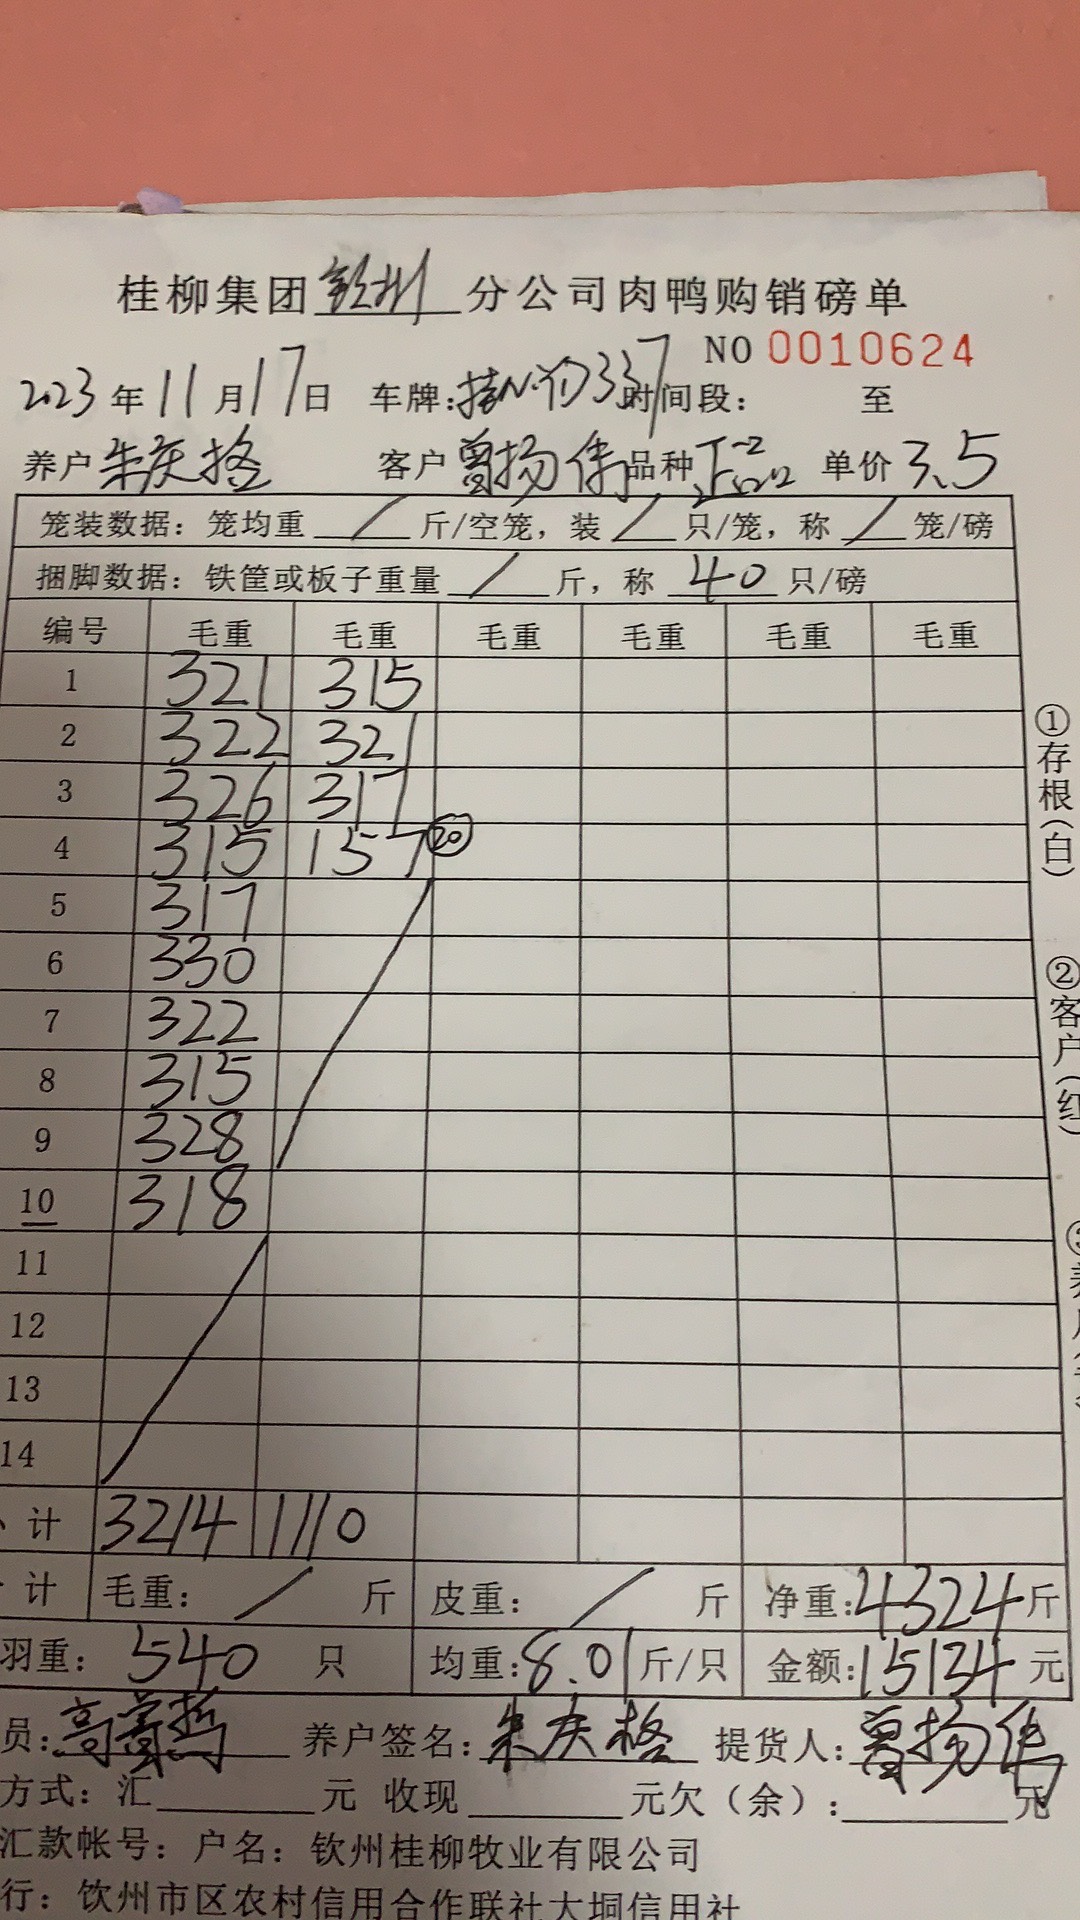 桂柳集团钦州分公司肉鸭购销磅单
NO 0010624
2023年11月17日 车牌: 337 时间段: 至
养户 朱庆格 客户 曾扬伟 品种 正品 单价 3.5
笼装数据：笼均重 / 斤/空笼，装 / 只/笼，称 / 笼/磅
捆脚数据：铁筐或板子重量 / 斤，称 40 只/磅
编号 毛重 毛重 毛重 毛重 毛重 毛重
1 321 315
2 322 321
3 326 317
4 315 157 ⑳
5 317
6 330
7 322
8 315
9 328
10 318
11
12
13
14
计 3214 1110
计 毛重： / 斤 皮重： / 斤 净重：4324斤
羽重： 540 只 均重：8.01斤/只 金额：15134元
员： 养户签名：朱庆格 提货人：曾扬伟
方式：汇 元 收现 元欠（余）： 元
汇款帐号：户名：钦州桂柳牧业有限公司
行：饮州市区农村信用合作联社大垌信用社
①存根(白)
②客户(红)